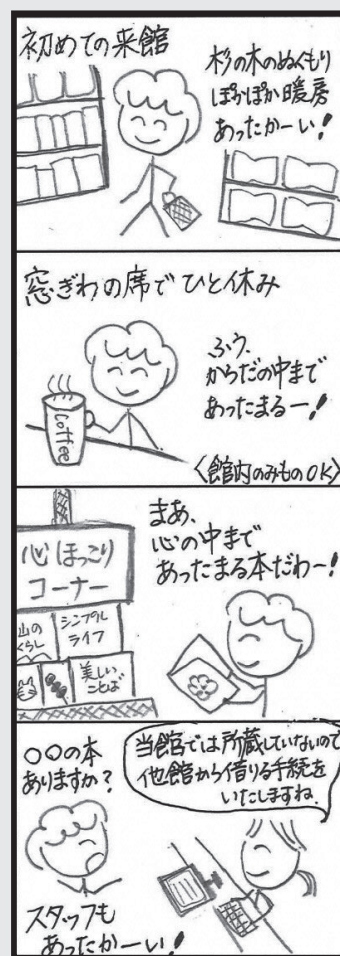 初めての来館
杉の木のぬくもり
ぽかぽか暖房
あったかーい！
窓ぎわの席でひと休み
ふう、
からだの中まで
あったまるー！
coffee
〈館内のみものOK〉
まあ、
心の中まで
あったまる本だわ〜！
心ほっこり
コーナー
山の
くらし
シンプル
ライフ
美しい
ことば
○○の本
ありますか？
当館では所蔵していないので
他館から借りる手続を
いたしますね。
スタッフも
あったかーい！